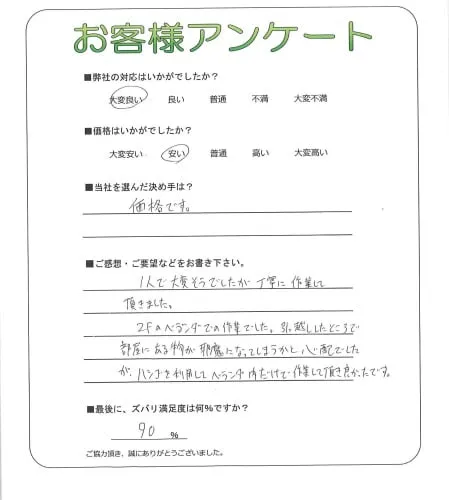 お客様アンケート
■弊社の対応はいかがでしたか?
大変良い 良い 普通 不満 大変不満
■価格はいかがでしたか?
大変安い 安い 普通 高い 大変高い
■当社を選んだ決め手は?
価格です。
■ご感想・ご要望などをお書き下さい。
1人で大変そうでしたが丁寧に作業して
頂きました。
2Fのベランダでの作業でした。引っ越ししたところで
部屋にある物が邪魔になってしまうかと心配でした
が、ハシゴを利用してベランダ内だけで作業して頂き良かったです。
■最後に、ズバリ満足度は何%ですか?
90 %
ご協力頂き、誠にありがとうございました。